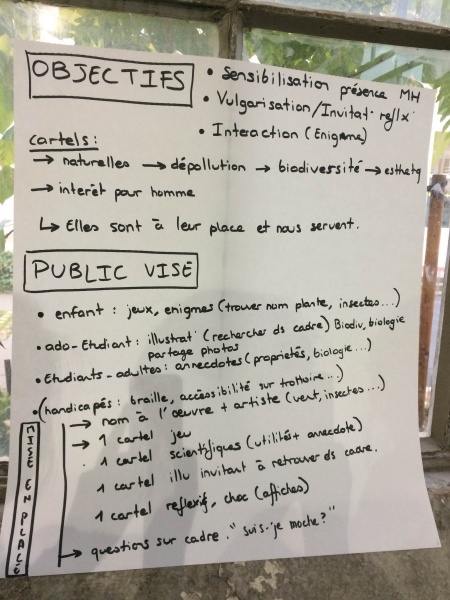 OBJECTIFS
• Sensibilisation présence MH
• Vulgarisation/Invitat° reflx°
• Interaction (Enigme)
cartels :
→ naturelles → dépollution → biodiversité → esthetq
→ interêt pour homme
↳ Elles sont à leur place et nous servent.
PUBLIC VISÉ
• enfant : jeux, enigmes (trouver nom plante, insectes...)
• ado-Etudiant : illustrat° (rechercher ds cadre) Biodiv, biologie
partage photos
• Etudiants-adultes : annecdotes (propriétés, biologie...)
• (handicapés : braille, accessibilité sur trottoire..)
MISE EN PLACE
→ nom à l'oeuvre + artiste (vent, insectes...)
→ 1 cartel jeu
1 cartel scientifiques (utilités + annecdote)
1 cartel illu invitant à retrouver ds cadre.
1 cartel reflexif, choc (affiches)
→ questions sur cadre. "suis-je moche ?"